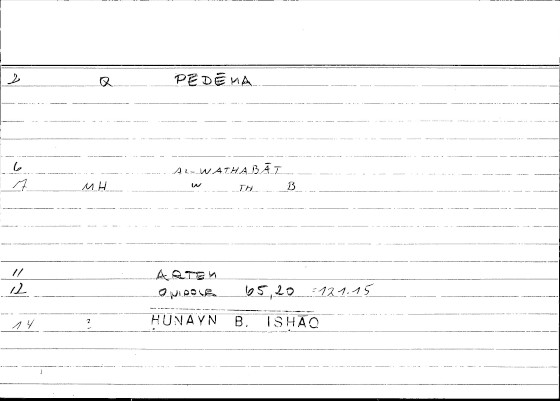 2 Q PEDĒNA
6 AL-WATHABĀT
7 MH W TH B
11 ARTEN
12 65,20 =121.15
14 ? ḤUNAYN B. ISḤĀQ